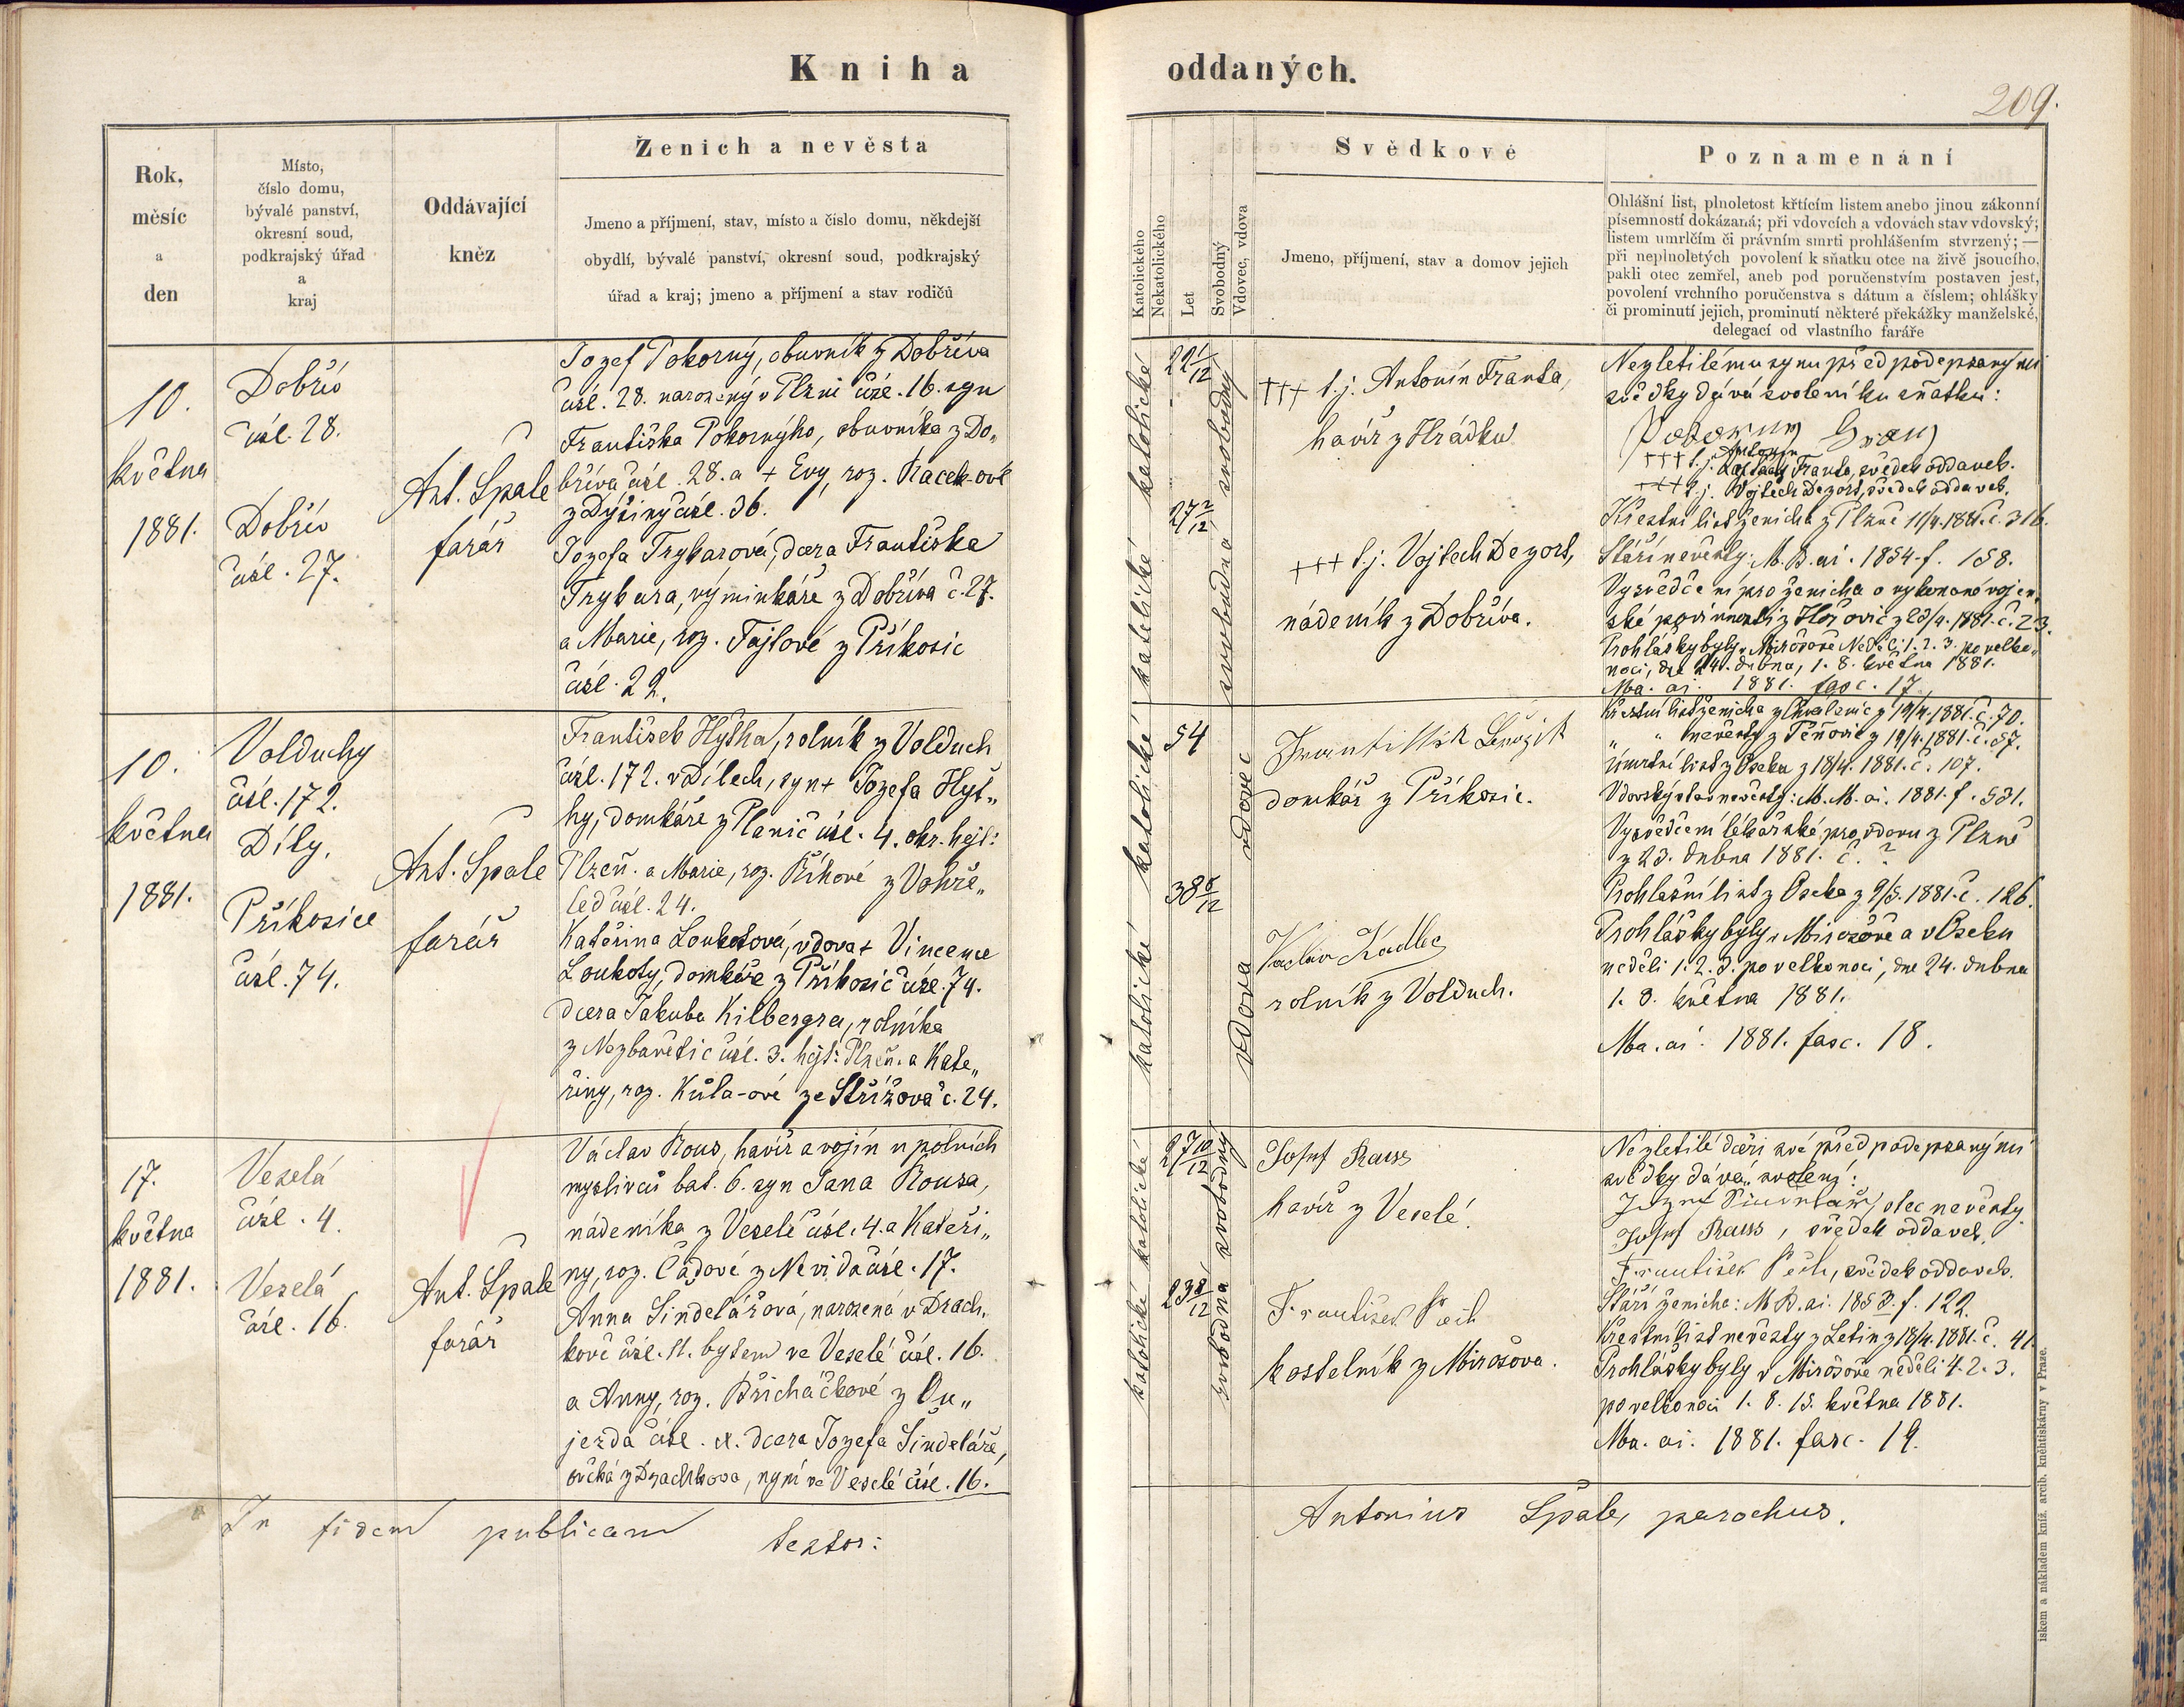 Kniha
oddaných.
209.
Rok,
měsíc
a
den
Místo,
číslo domu,
bývalé panství,
okresní soud,
podkrajský úřad
a
kraj
Oddávající
kněz
Ženich a nevěsta
Jmeno a příjmení, stav, místo a číslo domu, někdejší
obydlí, bývalé panství, okresní soud, podkrajský
úřad a kraj; jmeno a příjmení a stav rodičů
Katolického
Nekatolického
Let
Svobodný
Vdovec, vdova
Svědkové
Jmeno, příjmení, stav a domov jejich
Poznamenání
Ohlášní list, plnoletost křtícím listem anebo jinou zákonní
písemností dokázaná; při vdovcích a vdovách stav vdovský;
listem umrlčím či právním smrti prohlášením stvrzený; —
při neplnoletých povolení k sňatku otce na živě jsoucího,
pakli otec zemřel, aneb pod poručenstvím postaven jest,
povolení vrchního poručenstva s dátum a číslem; ohlášky
či prominutí jejich, prominutí některé překážky manželské,
delegací od vlastního faráře
10.
května
1881.
Dobřív
čísl. 28.
Dobřív
čísl. 27.
Ant. Špale
farář
Jozef Pokorný, obuvník z Dobříva
čísl. 28. narozený v Plzni čísl. 16. syn
Františka Pokornýho, obuvníka z Do„
bříva čísl. 28. a + Evy, roz. Racek-ové
z Dýšiny čísl. 36.
Jozefa Trybarová, dcera Františka
Trybara, výminkáře z Dobříva č. 27.
a Marie, roz. Fajtové z Příkosic
čísl. 22.
katolické
katolické
22 1/12
27 2/12
svobodný
svobodná
+++ t. j. Antonín Franta,
havíř z Hrádku
+++ t. j. Vojtech Dezort,
nádeník z Dobříva.
Nezletilému synu před podepsanými
svědky dává svolení ku sňatku:
Antonín
+++ t. j. Franta, svědek oddaveb.
+++ t. j. Vojtěch Dezort, svědek oddaveb.
Křestní list ženicha z Plzně 11/4. 1881. č. 316.
Stáří nevěsty: M. B. ai. 1854. f. 158.
Vysvědčení pro ženicha o vykonané vojen„
ské povinnosti z Hořovic z 23/4. 1881. č. 23.
Prohlášky byly v Mirošově Neděli 1. 2. 3. po velko„
noci, dne 24. dubna, 1. 8. května 1881.
Ma. ai. 1881. fasc. 17.
10.
května
1881.
Volduchy
čísl. 172.
Díly.
Příkosice
čísl. 74.
Ant. Špale
farář
František Hytha, rolník z Volduch
čísl. 172. v Dílech, syn + Jozefa Hyt„
hy, domkáře z Planič čísl. 4. okr. hejt:
Plzeň. a Marie, roz. Říhové z Vohře„
led čísl. 24.
Kateřina Loukotová, vdova + Vincence
Loukoty, domkáře z Příkosic čísl. 74.
dcera Jakuba Kilbergra, rolníka
z Nezbavětic čísl. 3. hejt: Plzeň. a Kate„
řiny, roz. Kůla-ové ze Střížova č. 24.
katolické
katolické
54
38 8/12
vdovec
vdova
domkář z Příkosic.
Václav Kadlec
rolník z Volduch.
Křestní list ženicha z Chválenic z 19/4. 1881. č. 70.
„ „ nevěsty z Těňovic z 19/4. 1881. č. 57.
Úmrtní list z Oseka z 18/4. 1881. č. 107.
Vdovský stav nevěsty: M. M. ai. 1881. f. 531.
Vysvědčení lékařské pro vdovu z Plzně
z 23. dubna 1881. č. ?
Prohlašní list z Oseka z 9/5. 1881. č. 126.
Prohlášky byly v Mirošově a v Oseku
neděli 1. 2. 3. po velkonoci, dne 24. dubna
1. 8. května 1881.
Ma. ai. 1881. fasc. 18.
17.
května
1881.
Veselá
čísl. 4.
Veselá
čísl. 16.
Ant. Špale
farář
Václav Rous, havíř a vojín u polních
myslivců bat. 6. syn Jana Rousa,
nádeníka z Veselé čísl. 4. a Kateři„
ny, roz. Čadové z Nevida čísl. 17.
Anna Šindelářová, narozená v Drach„
kově čísl. 11. bytem ve Veselé čísl. 16.
a Anny, roz. Přicháčkové z Ou„
jezda čísl. dcera Jozefa Šindeláře,
ovčáka z Drachkova, nyní ve Veselé čísl. 16.
katolické
katolické
27 10/12
23 8/12
svobodný
svobodná
Josef Rauss
havíř z Veselé.
František Pech
kostelník z Mirošova.
Nezletilé dceři své před podepsanými
svědky dává svolení:
Jozef Šindelář, otec nevěsty.
Josef Rauss, svědek oddaveb.
František Pech, svědek oddaveb.
Stáří ženicha: M. B. ai. 1853. f. 122.
Křestní list nevěsty z Letin z 18/4. 1881. č. 41.
Prohlášky byly v Mirošově neděli 4. 2. 3.
po velkonoci 1. 8. 15. května 1881.
Ma. ai. 1881. fasc. 19.
In fidem publicam testor:
Antonius Špale, parochus.
iskem a nákladem kníž. arcib. knihtiskárny v Praze.